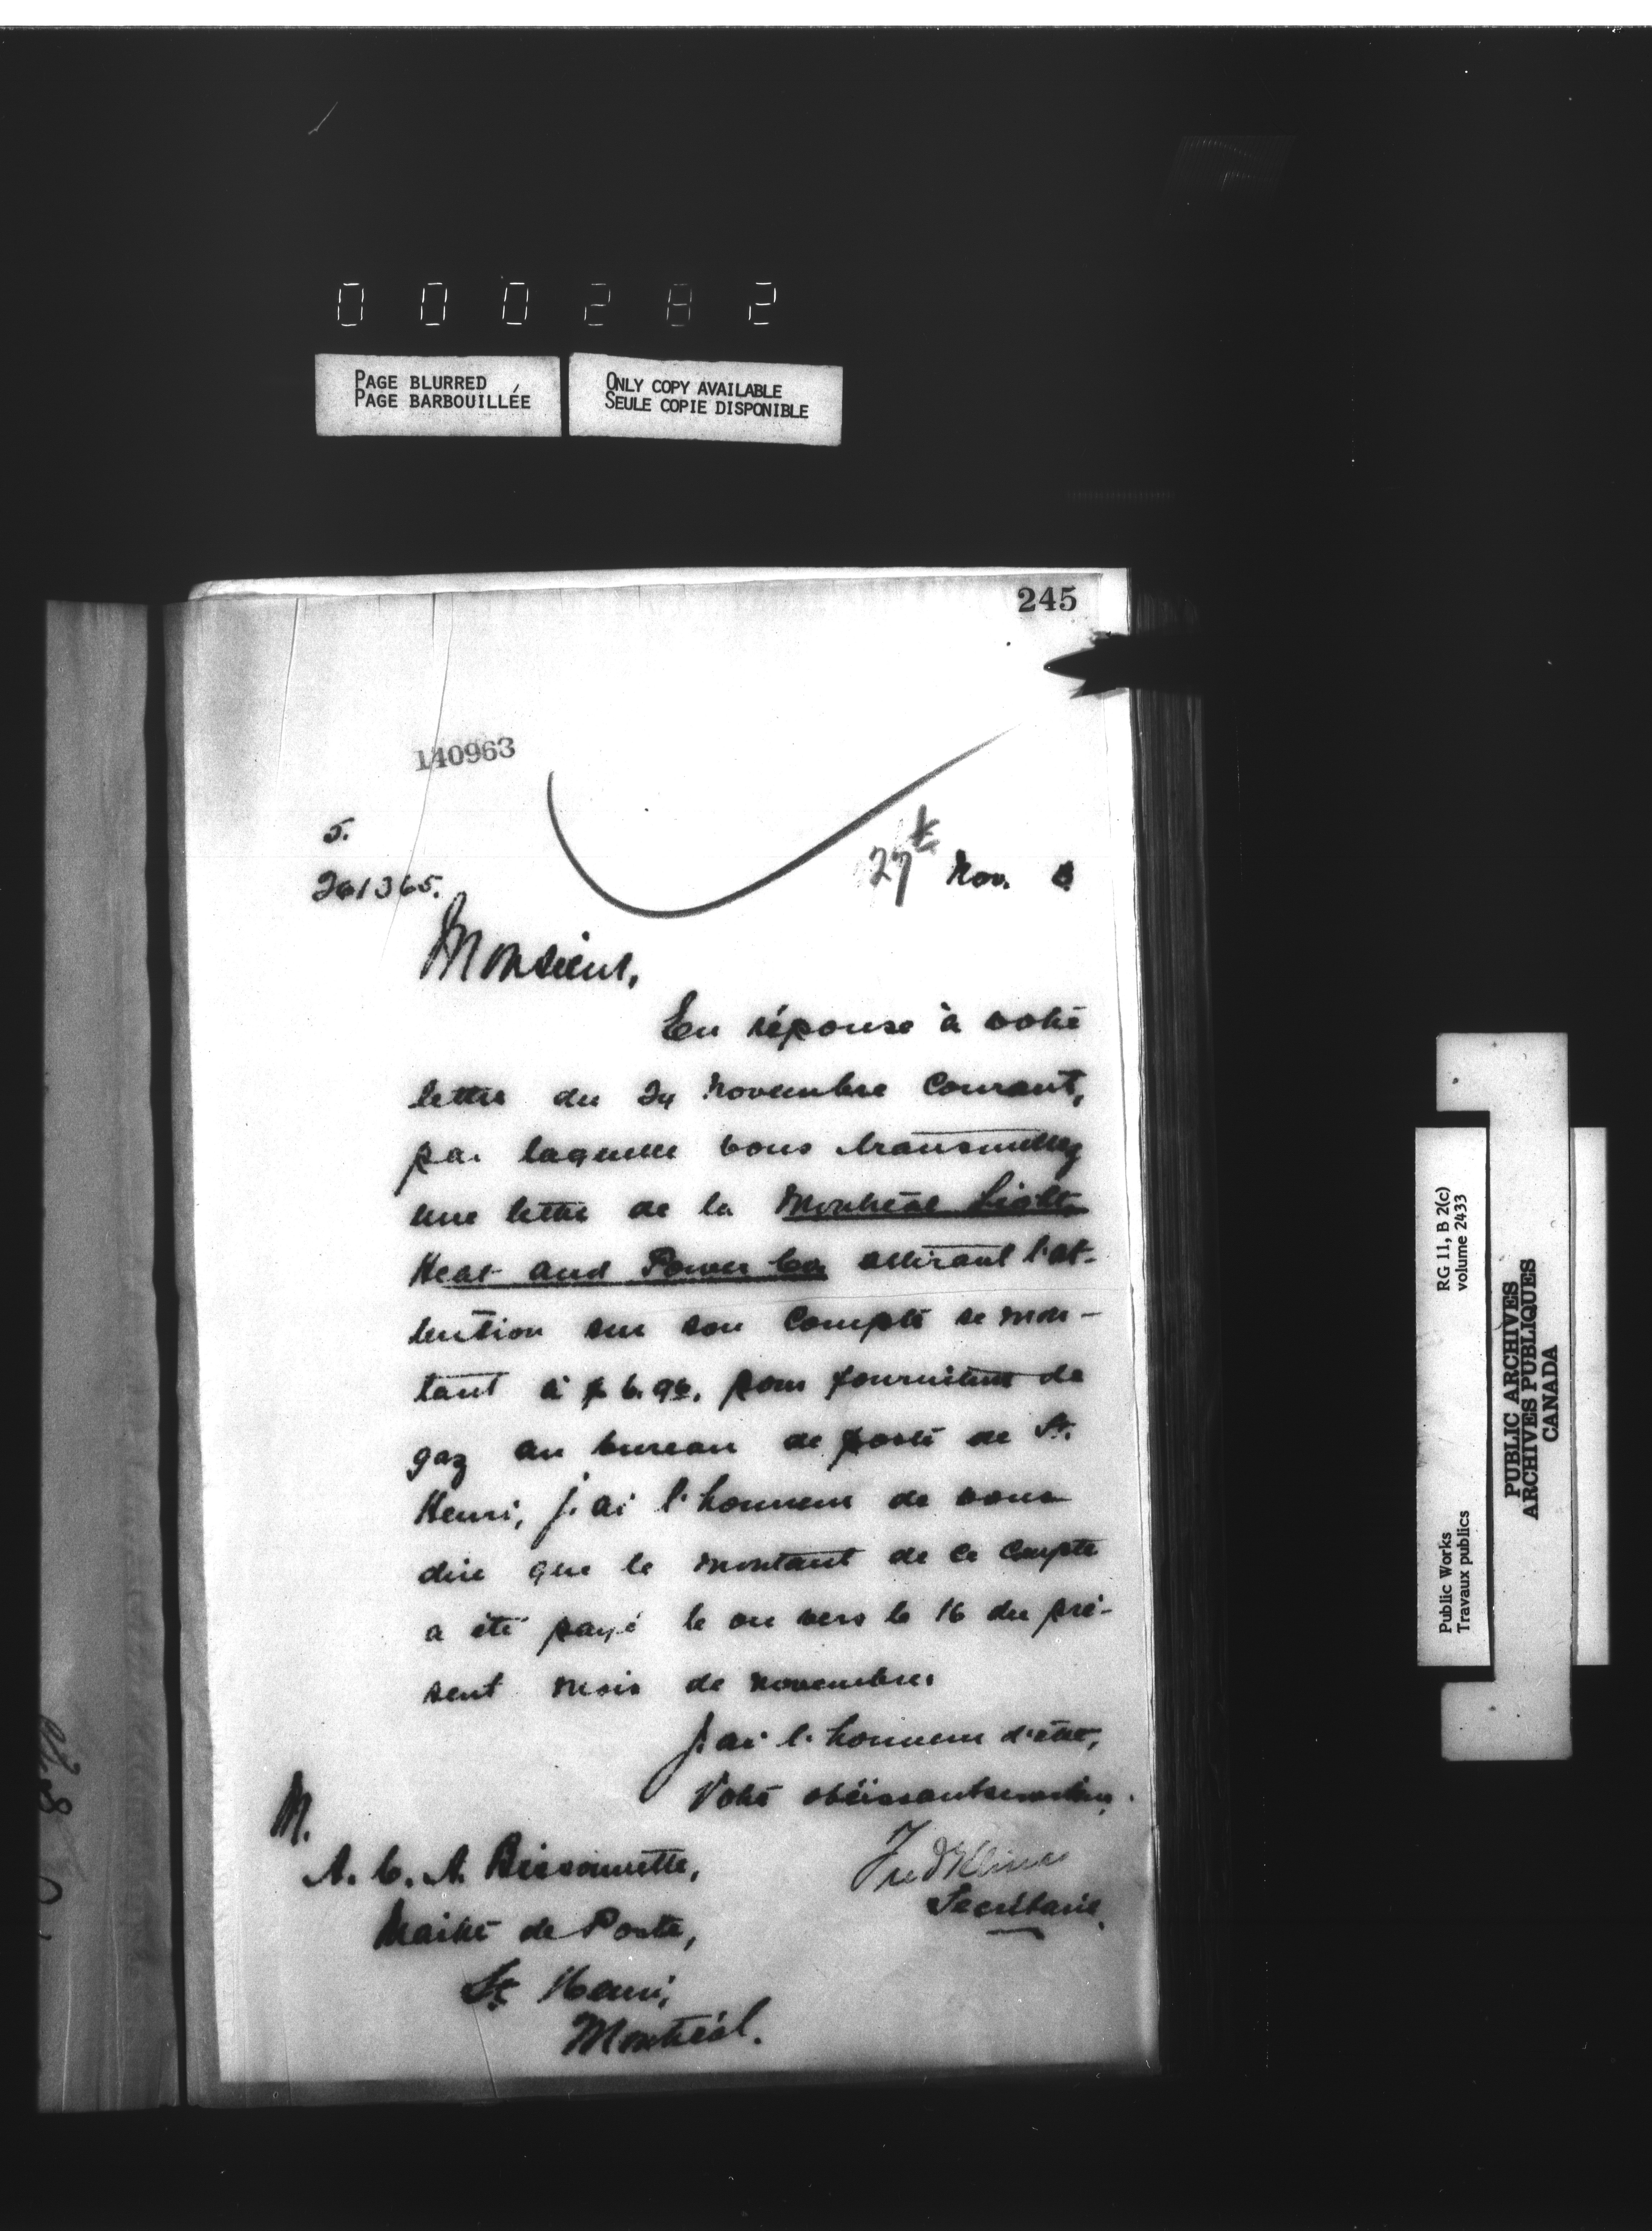 000282
PAGE BLURRED
PAGE BARBOUILLÉE
ONLY COPY AVAILABLE
SEULE COPIE DISPONIBLE
245
140963
5.
261365.
27th Nov.
Monsieur,
En réponse à votre
lettre du 24 Novembre Courant,
par laquelle vous transmettez
une lettre de la Montréal Light,
Heat and Power Co. attirant l'at-
tention sur son Compte se mon-
tant à $6.96, pour fourniture de
gaz au bureau de poste de St.
Henri, j'ai l'honneur de vous
dire que le montant de ce Compte
a été payé le ou vers le 16 du pré-
sent mois de novembre.
J'ai l'honneur d'être,
Votre obéissant serviteur,
Fred
Secrétaire.
M.
A. C. A. Bissonnette,
Maître de Poste,
St Henri,
Montréal.
Public Works
Travaux publics
RG 11, B 2(c)
volume 2433
PUBLIC ARCHIVES
ARCHIVES PUBLIQUES
CANADA